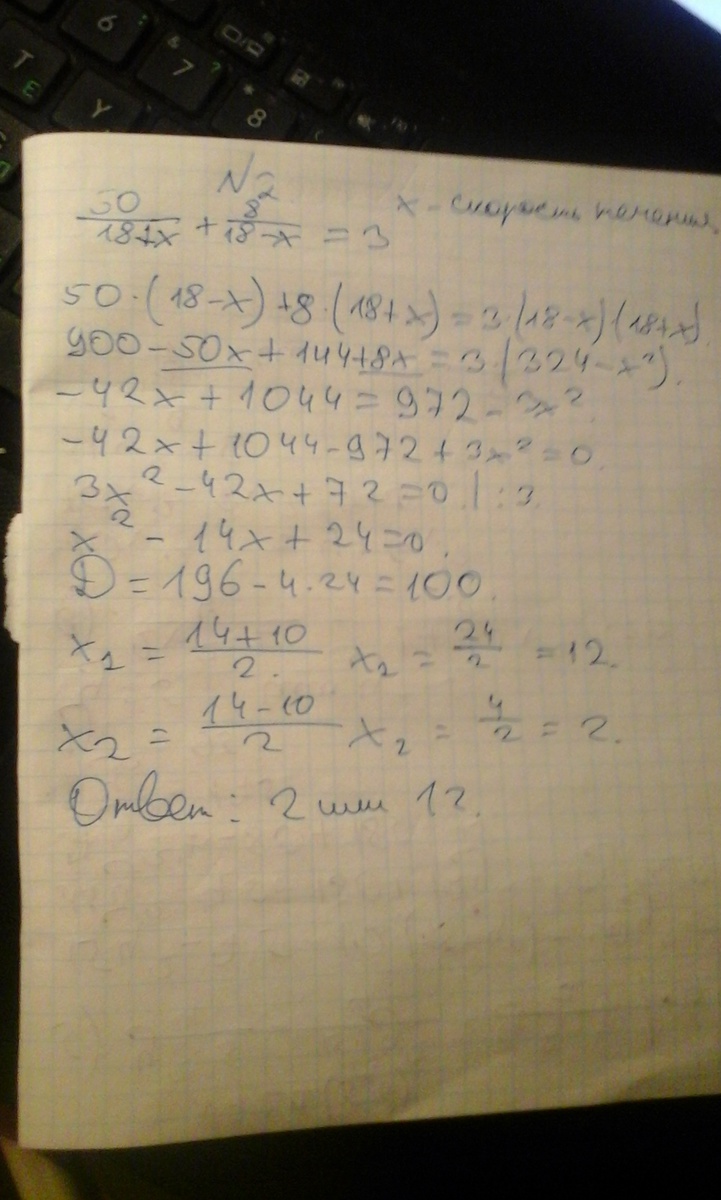 6
7
8
Т
Е
Y
N2
50/(18+x) + 8/(18-x) = 3
x - скорость течения.
50·(18-x)+8·(18+x)=3·(18-x)(18+x).
900-50x+144+8x=3·(324-x²).
-42x+1044=972-3x².
-42x+1044-972+3x²=0.
3x²-42x+72=0. | :3.
x²-14x+24=0.
D=196-4·24=100.
x₁ = (14+10)/2. x₂ = 24/2 = 12.
x₂ = (14-10)/2 x₂ = 4/2 = 2.
Ответ: 2 или 12.